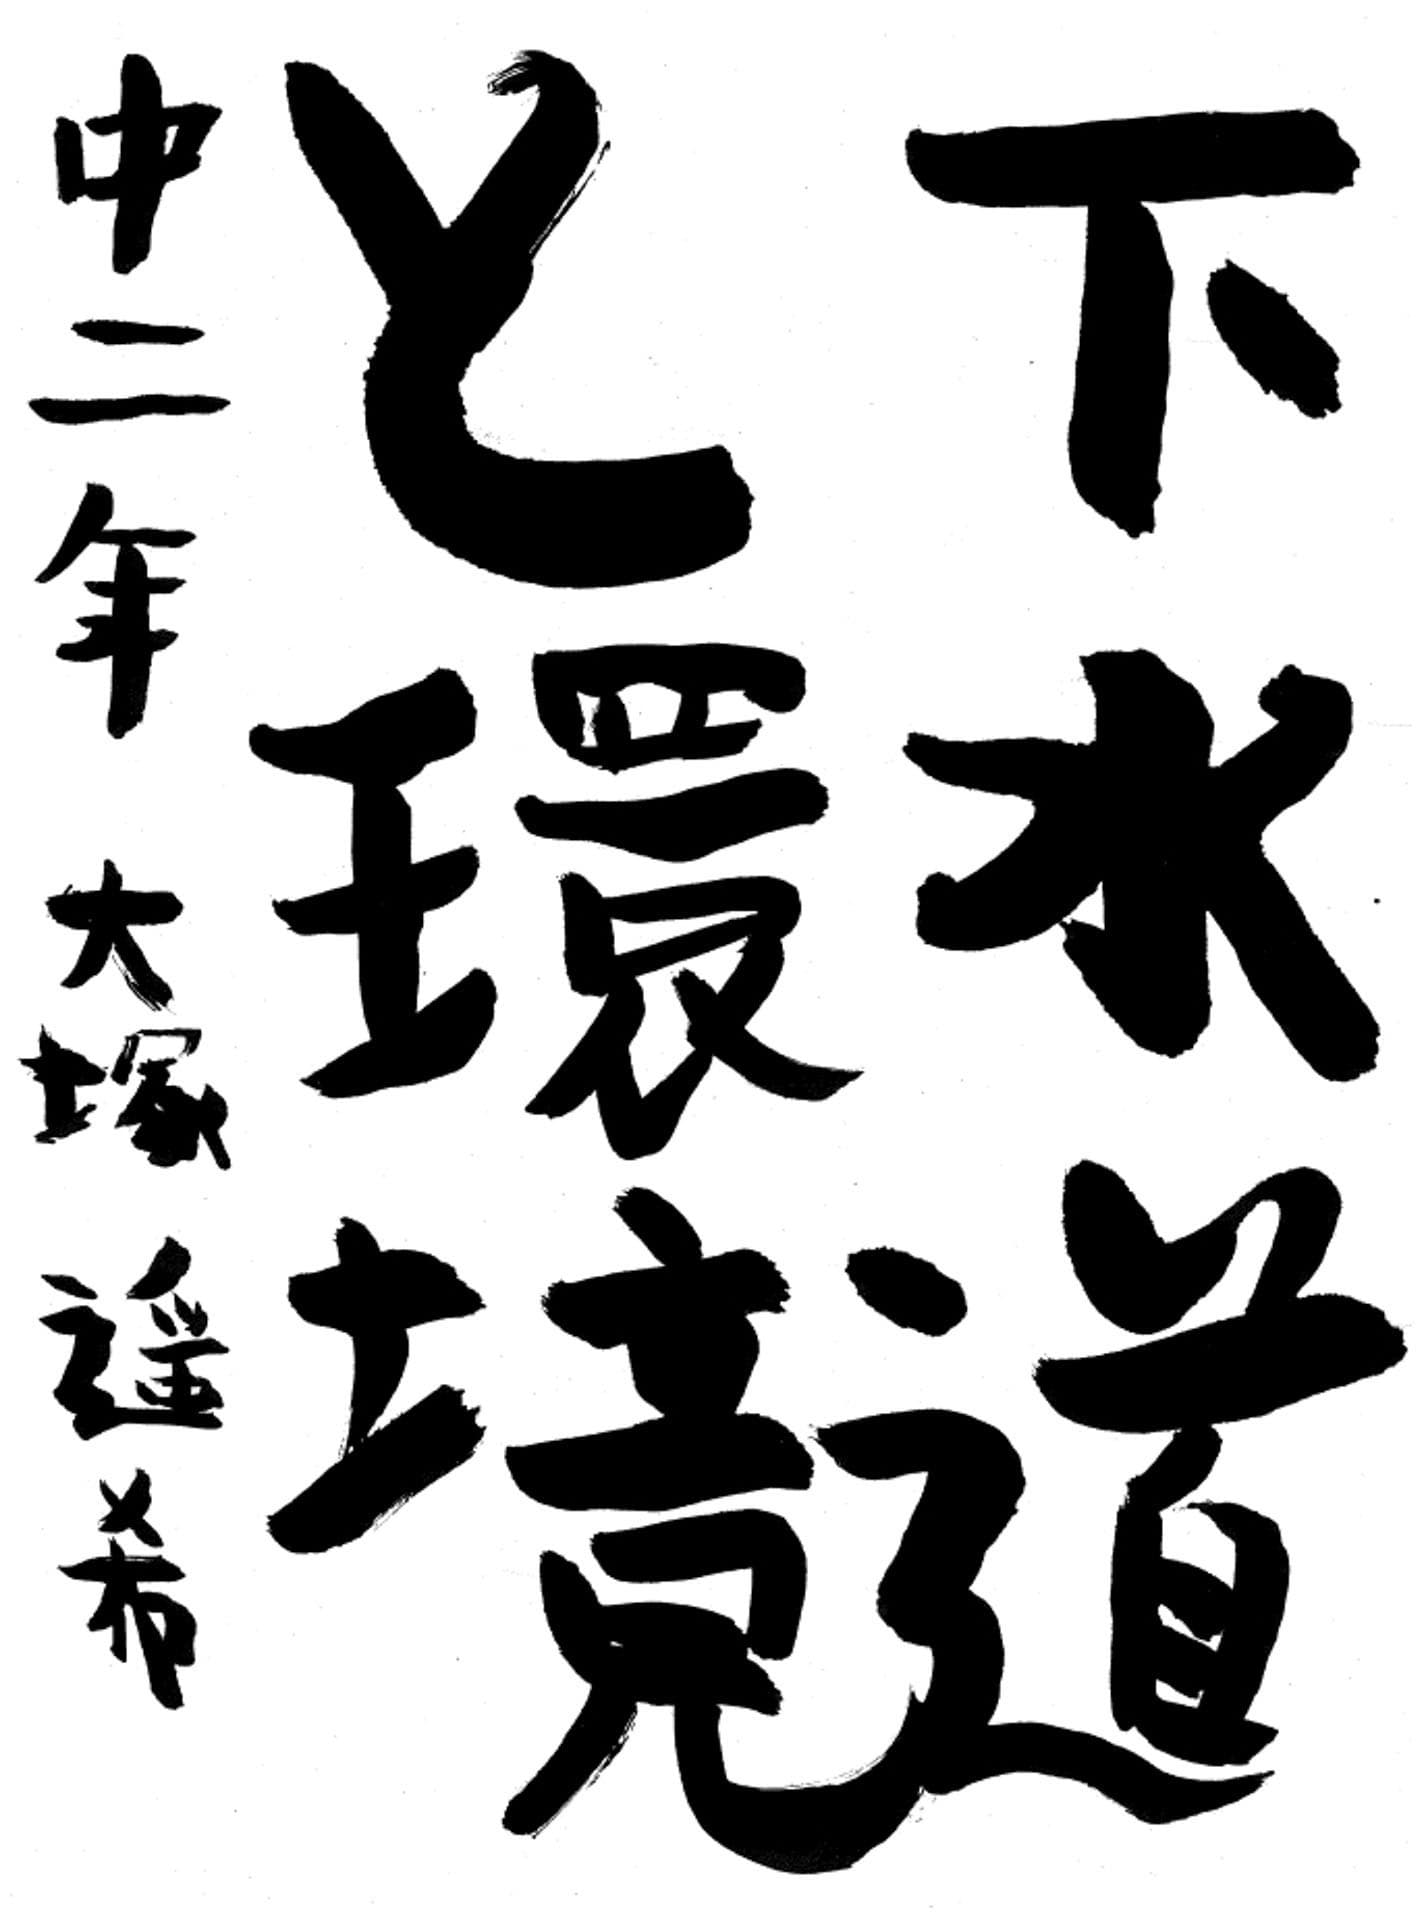 下水道
と環境
中二年 大塚 遥希